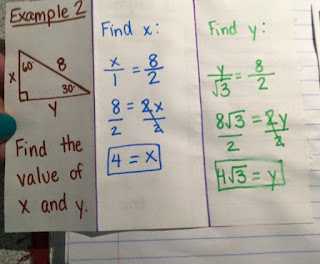 Example 2
60° 8
x
30°
y
Find the
value of
x and y.
Find x:
x/1 = 8/2
8/2 = 2x/2
4 = x
Find y:
y/√3 = 8/2
8√3/2 = 2y/2
4√3 = y